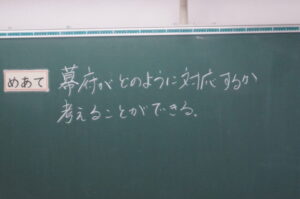 めあて
幕府がどのように対応するか
考えることができる。